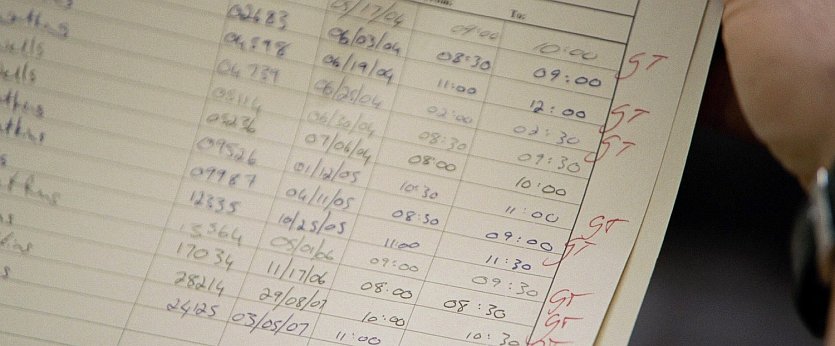 To:
05/17/04 09:00 10:00
02683 06/03/04 08:30 09:00 ST
06/19/04 11:00 12:00 ST
04739 06/25/04 02:00 02:30 ST
05114 06/30/04 08:30 09:30
05236 07/06/04 08:00 10:00
09526 01/12/05 10:30 11:00 ST
09987 04/11/05 08:30 09:00 ST
12335 10/25/05 11:00 11:30
13364 05/01/06 09:00 09:30 ST
17034 11/17/06 08:00 08:30 ST
28214 29/08/07 10:00 10:30 ST
24125 03/05/07 11:00